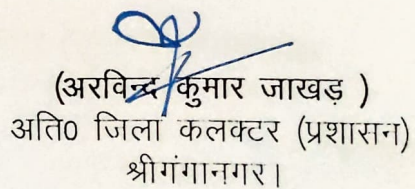 (अरविन्द कुमार जाखड़ )
अति0 जिला कलक्टर (प्रशासन)
श्रीगंगानगर।